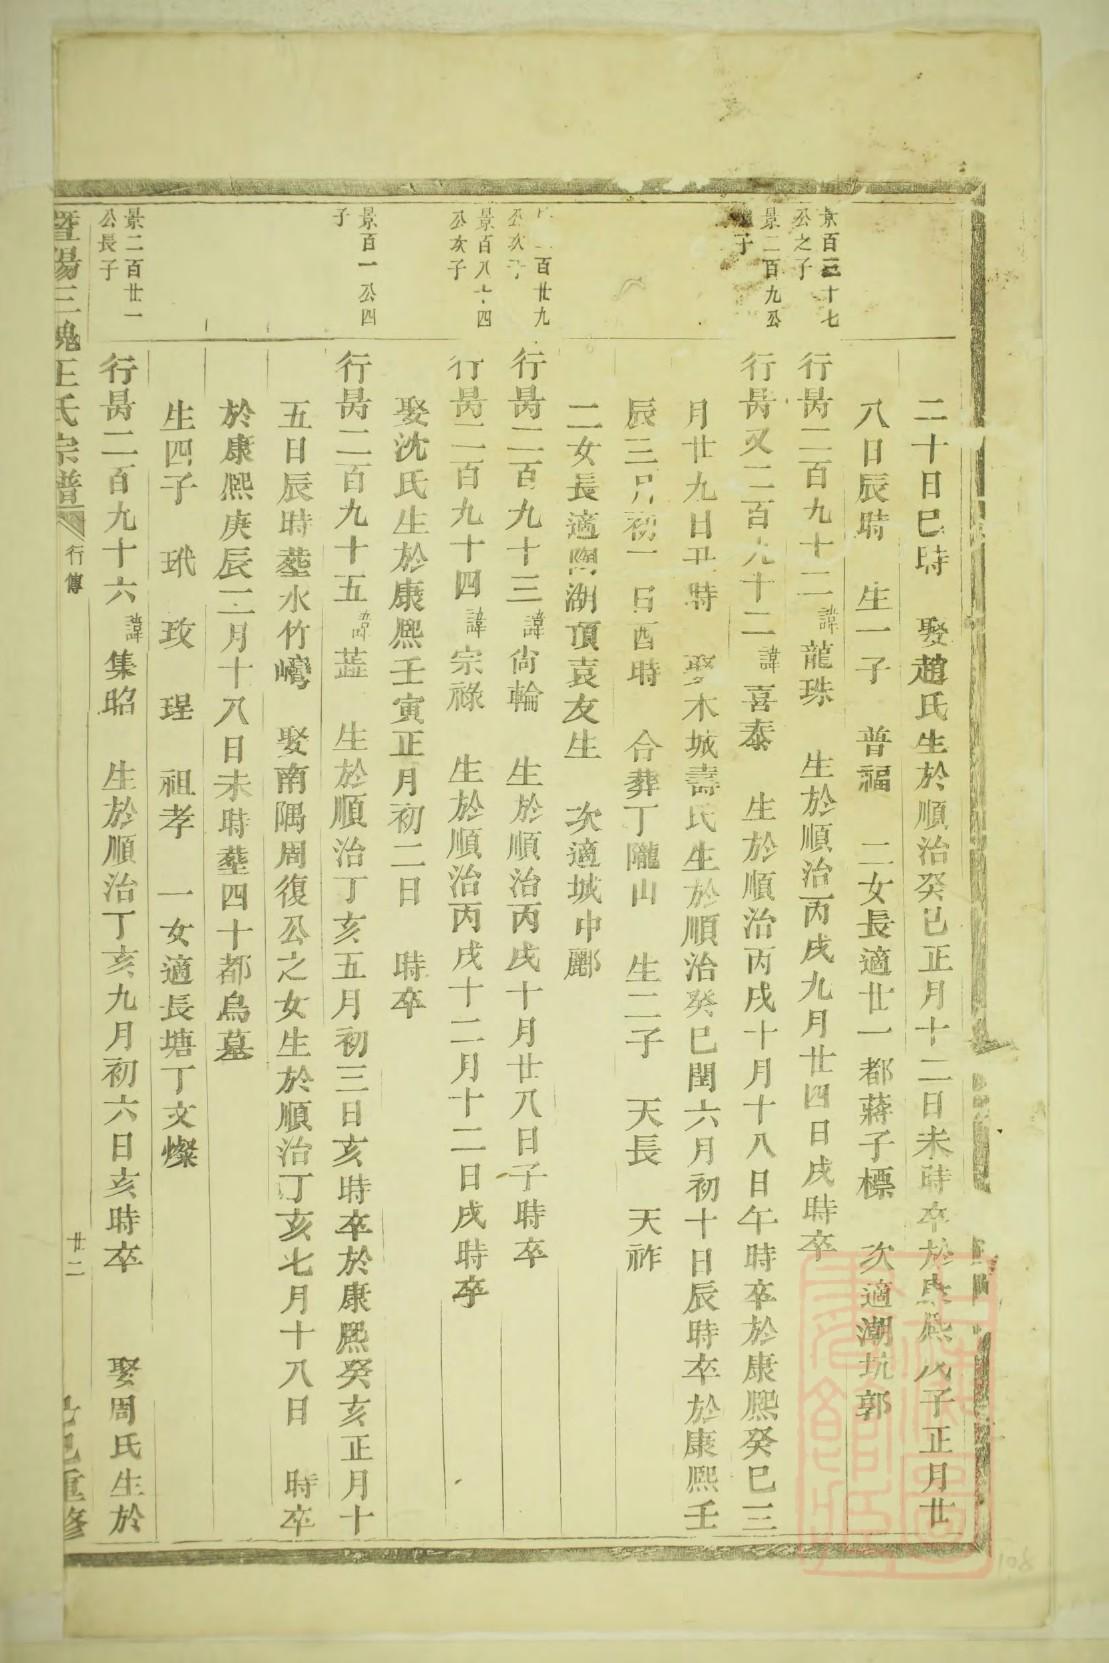 二十日巳時　娶趙氏生於順治癸巳正月十二日未時卒於康熙戊子正月廿
八日辰時　生一子　普福　二女長適廿一都蔣子標　次適潮坑郭
景百三十七
公之子
行昺二百九十二諱龍珠　生於順治丙戌九月廿四日戌時卒
景二百九公
子
行昺又二百九十二諱喜泰　生於順治丙戌十月十八日午時卒於康熙癸巳三
月廿九日丑時　娶木城壽氏生於順治癸巳閏六月初十日辰時卒於康熙壬
辰三月初一日酉時　合葬丁隴山　生二子　天長　天祚
二女長適陶湖頂袁友生　次適城中酈
百廿九
公次子
行昺二百九十三諱尚輪　生於順治丙戌十月廿八日子時卒
景百八十四
公次子
行昺二百九十四諱宗祿　生於順治丙戌十二月十二日戌時卒
娶沈氏生於康熙壬寅正月初二日　時卒
景百一公四
子
行昺二百九十五諱藎　生於順治丁亥五月初三日亥時卒於康熙癸亥正月十
五日辰時塟水竹塢　娶南隅周復公之女生於順治丁亥七月十八日　時卒
於康熙庚辰二月十八日未時塟四十都烏墓
生四子　玳　玫　珵　祖孝　一女適長塘丁文燦
景二百廿一
公長子
行昺二百九十六諱集昭　生於順治丁亥九月初六日亥時卒　娶周氏生於
暨陽三槐王氏宗譜　行傳　廿二　己巳重修
108